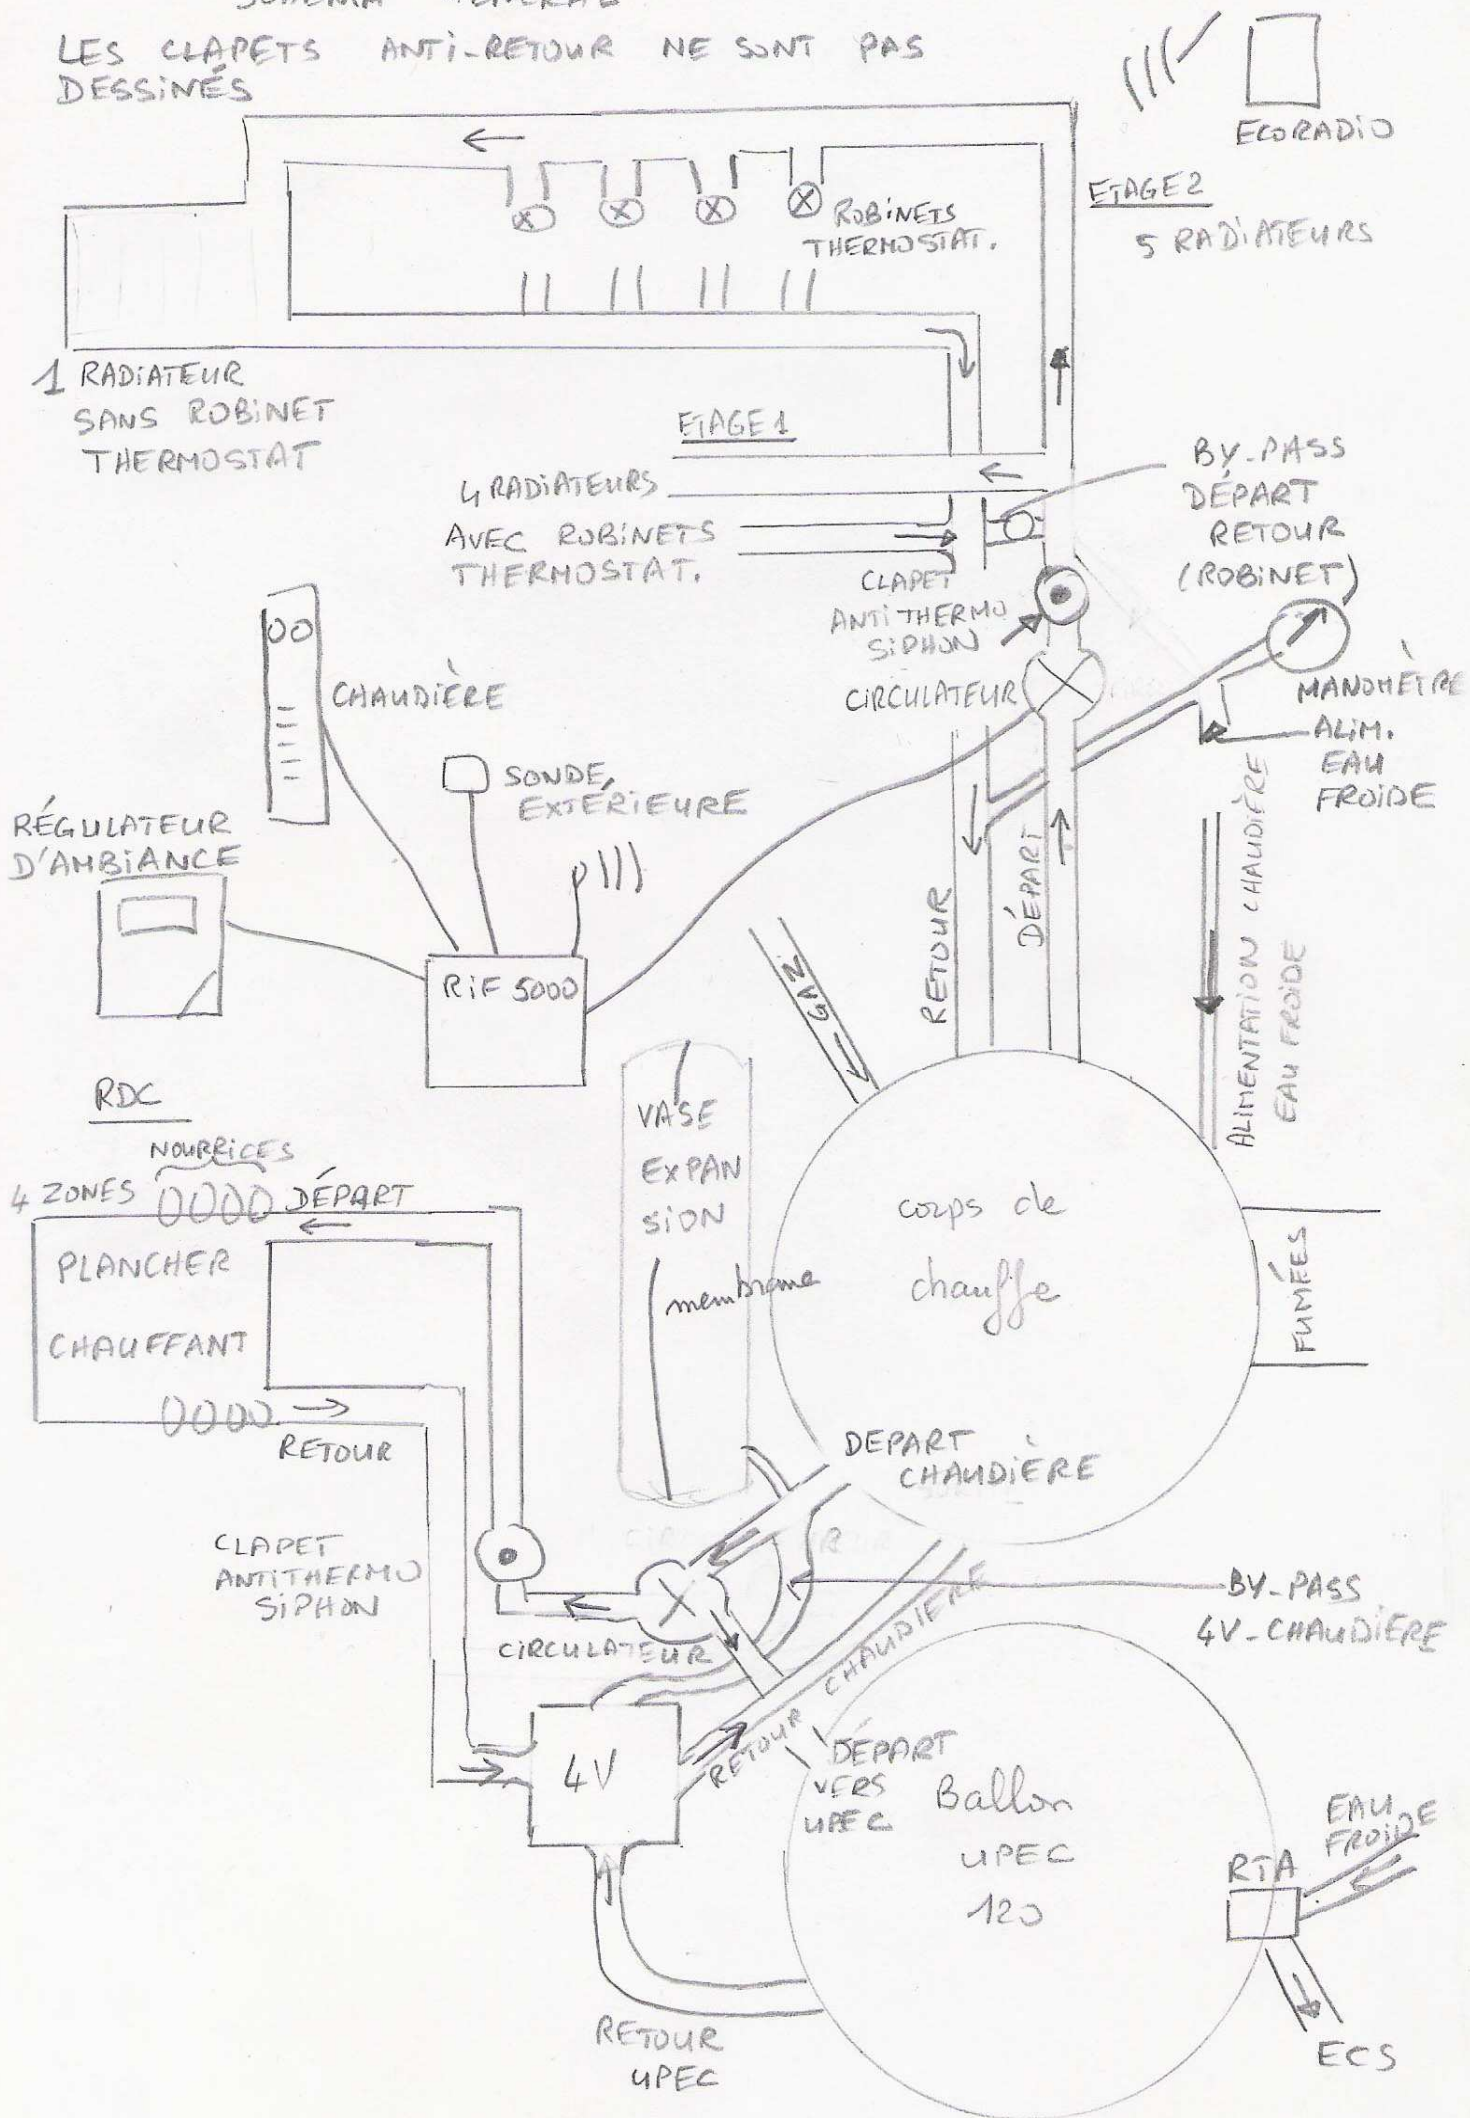 SCHEMA GENERAL
LES CLAPETS ANTI-RETOUR NE SONT PAS
DESSINÉS
ECORADIO
ETAGE 2
5 RADIATEURS
ROBINETS
THERMOSTAT.
1 RADIATEUR
SANS ROBINET
THERMOSTAT
ETAGE 1
4 RADIATEURS
AVEC ROBINETS
THERMOSTAT.
BY-PASS
DÉPART
RETOUR
(ROBINET)
CLAPET
ANTITHERMO
SIPHON
CIRCULATEUR
MANOMÈTRE
ALIM.
EAU
FROIDE
CHAUDIÈRE
SONDE
EXTÉRIEURE
RÉGULATEUR
D'AMBIANCE
RIF 5000
RETOUR
DÉPART
GAZ
ALIMENTATION CHAUDIÈRE
EAU FROIDE
RDC
NOURRICES
4 ZONES
DÉPART
PLANCHER
CHAUFFANT
RETOUR
VASE
EXPAN
SION
membrane
corps de
chauffe
FUMÉES
DEPART
CHAUDIÈRE
CLAPET
ANTITHERMO
SIPHON
CIRCULATEUR
BY-PASS
4V-CHAUDIÈRE
RETOUR CHAUDIERE
4V
DÉPART
VERS
UPEC
Ballon
UPEC
120
EAU
FROIDE
RTA
ECS
RETOUR
UPEC